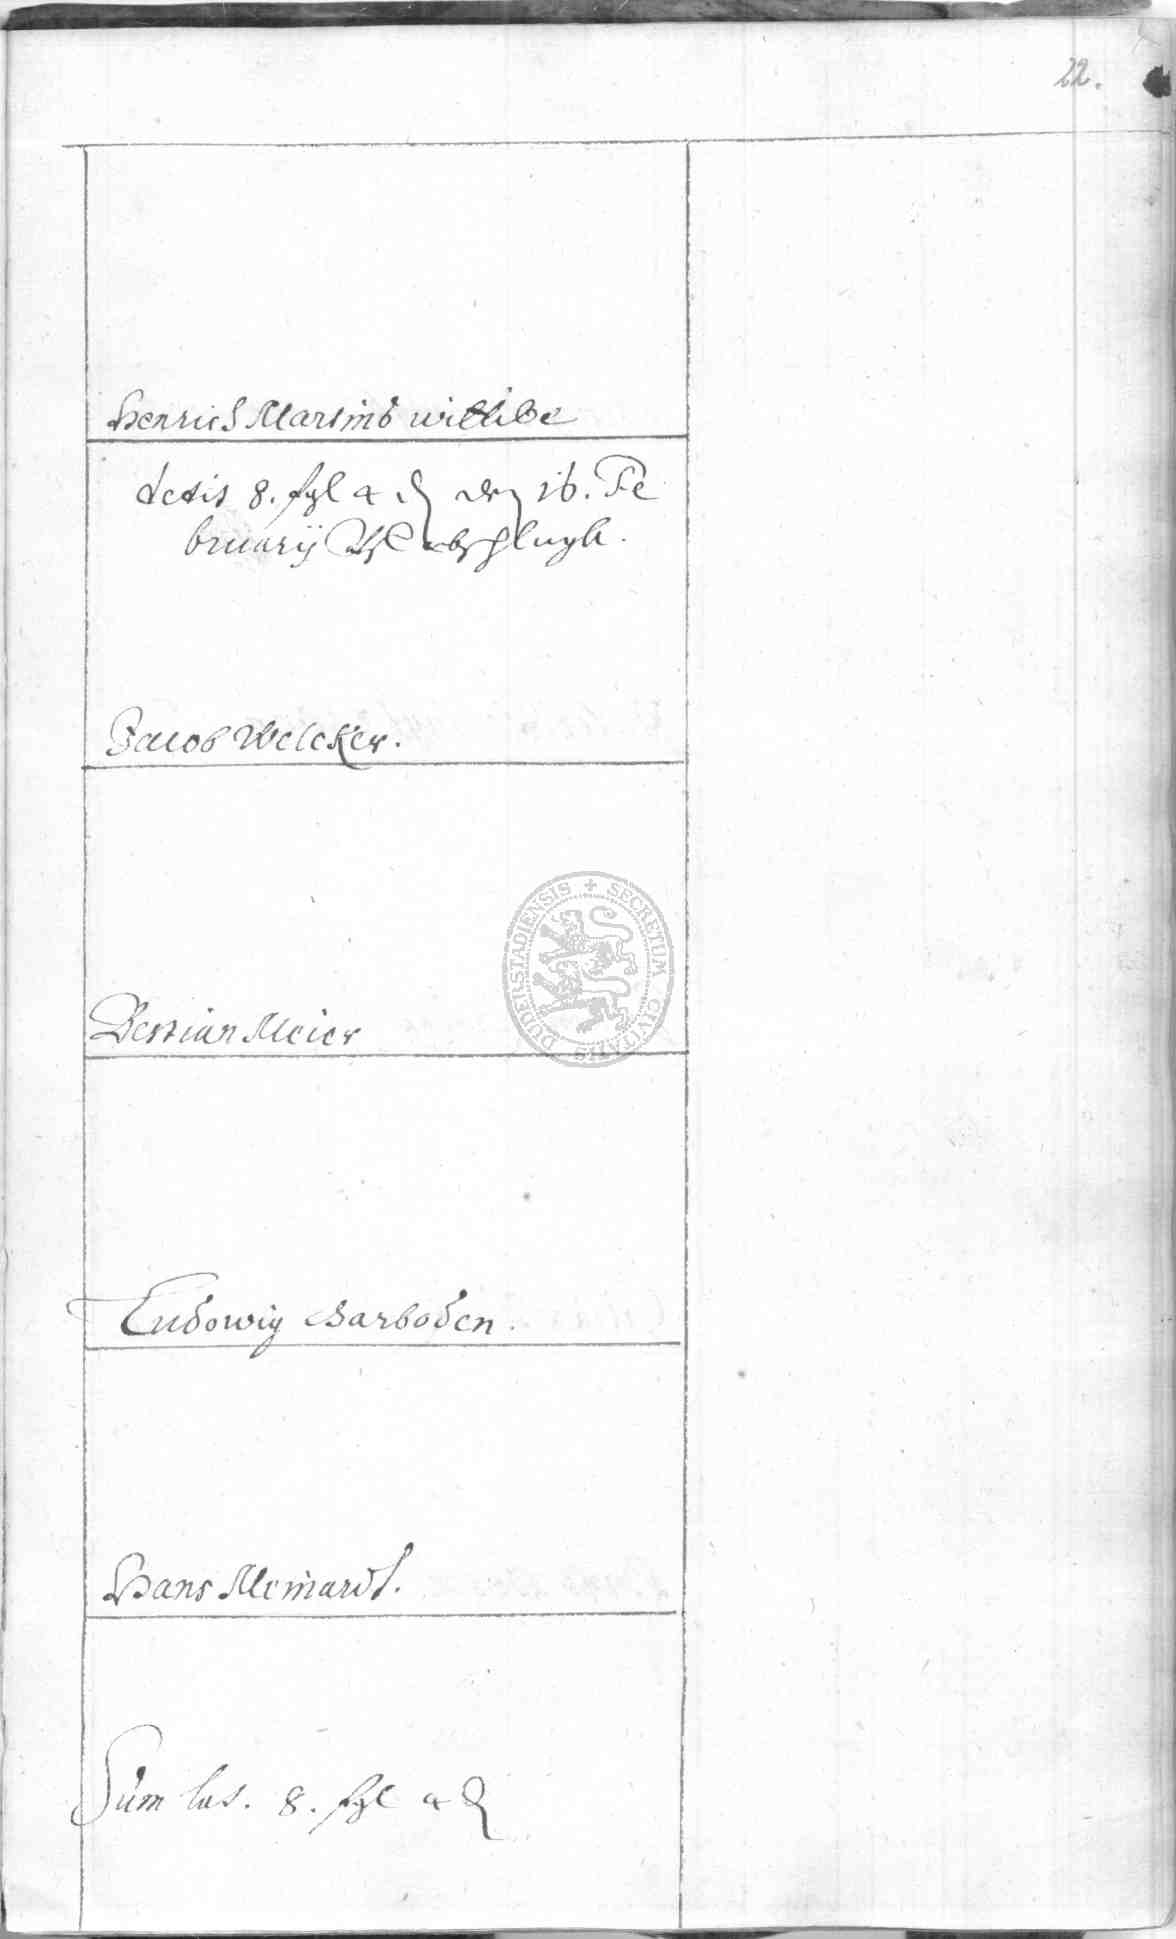 22.
Henrich Martins wittibe
dedit 8. ßgl 4 ₰ den 16. Fe
bruarij
Jacob Welcker.
Bestian Meier
Ludowig Barboden.
Hans Meinardt.
Sum lat. 8. ßgl 4 ₰
SECRETUM CIVITATIS DUDERSTADIENSIS +